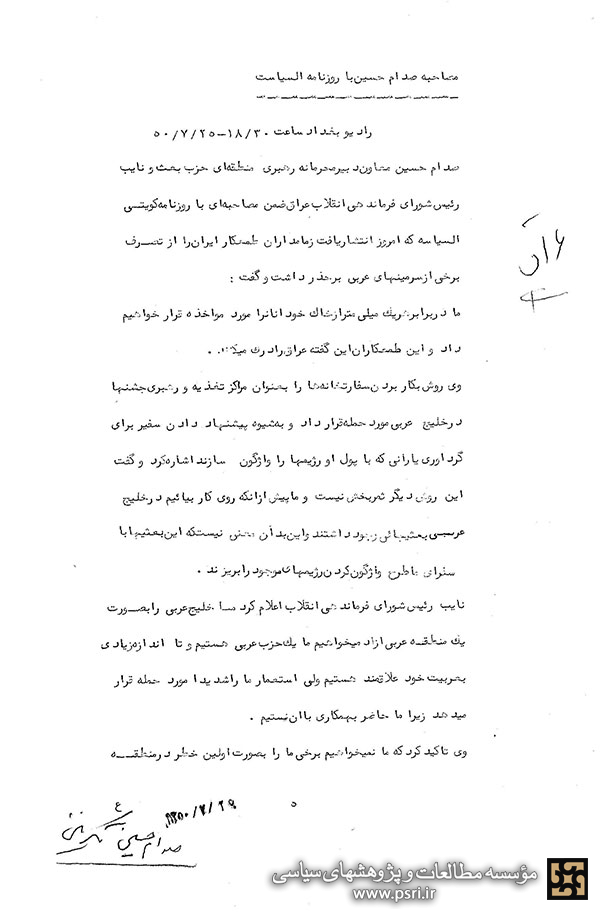 مصاحبه صدام حسین با روزنامه السیاست
رادیو بغداد ساعت ۱۸/۳۰-۵۰/۷/۲۵
صدام حسین معاون دبیر محرمانه رهبری منطقه‌ای حزب بعث و نایب
رئیس شورای فرماندهی انقلاب عراق ضمن مصاحبه‌ای با روزنامه کویتی
السیاسه که امروز انتشار یافت زمامداران طمعکار ایران را از تصرف
برخی از سرمینهای عربی برحذر داشت و گفت :
ما در برابر هر یک میلی متر از خاک خود آنانرا مورد مواخذه قرار خواهیم
داد و این طمعکاران این گفته عراق را درک میکنند .
وی روش بکار بردن سفارتخانه‌ها را بعنوان مراکز تغذیه و رهبری جشنها
در خلیج عربی مورد حمله قرار داد و به شیوه پیشنهاد دادن سفیر برای
گرداوری یارانی که با پول او رژیمها را واژگون سازند اشاره کرد و گفت
این روش دیگر ثمربخش نیست و ما پیش از آنکه روی کار بیائیم در خلیج
عربی بعثیهائی وجود داشتند و این بدان معنی نیست که این بعثیها با
سفرای ما طرح واژگون کردن رژیمهای موجود را بریزند .
نایب رئیس شورای فرماندهی انقلاب اعلام کرد ما خلیج عربی را بصورت
یک منطقه عربی ازاد میخواهیم ما یک حزب عربی هستیم و تا اندازه زیادی
بعربیت خود علاقمند هستیم ولی استعمار ما را شدیدا مورد حمله قرار
میدهد زیرا ما حاضر بهمکاری با ان نستیم .
وی تاکید کرد که ما نمیخواهیم برخی ما را بصورت اولین خطر در منطقه
۱۳۵۰/۷/۲۹
ع
صدام حسین تکریتی
مؤسسه مطالعات و پژوهشهای سیاسی
www.psri.ir